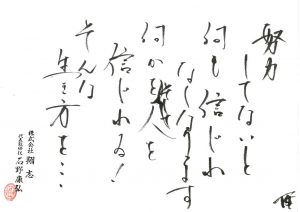 努力
してないと
何も信じれ
なくなります
何かを
信じれる!
そんな
生き方を…
株式会社 翔志
代表取締役 石野康弘